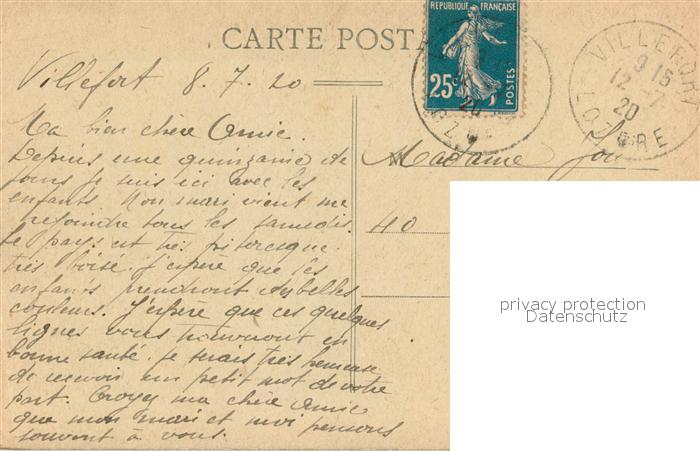 CARTE POSTA
RÉPUBLIQUE FRANÇAISE
25c
POSTES
20
VILLEFORT
9 15
12 -7
20
LOZÈRE
Villefort 8.7.20
Ma bien chère Amie.
Depuis une quinzanie de
jours je suis ici avec les
enfants. Mon mari vient me
rejoindre tous les samedis.
Le pays est très pittoresque
très boisé. J'espère que les
enfants prendront de belles
couleurs. J'espère que ces quelques
lignes vous trouveront en
bonne santé. Je serais très heureuse
de recevoir un petit mot de votre
part. Croyez ma chère Amie
que mon mari et moi pensons
souvent à vous.
Madame
40
privacy protection
Datenschutz